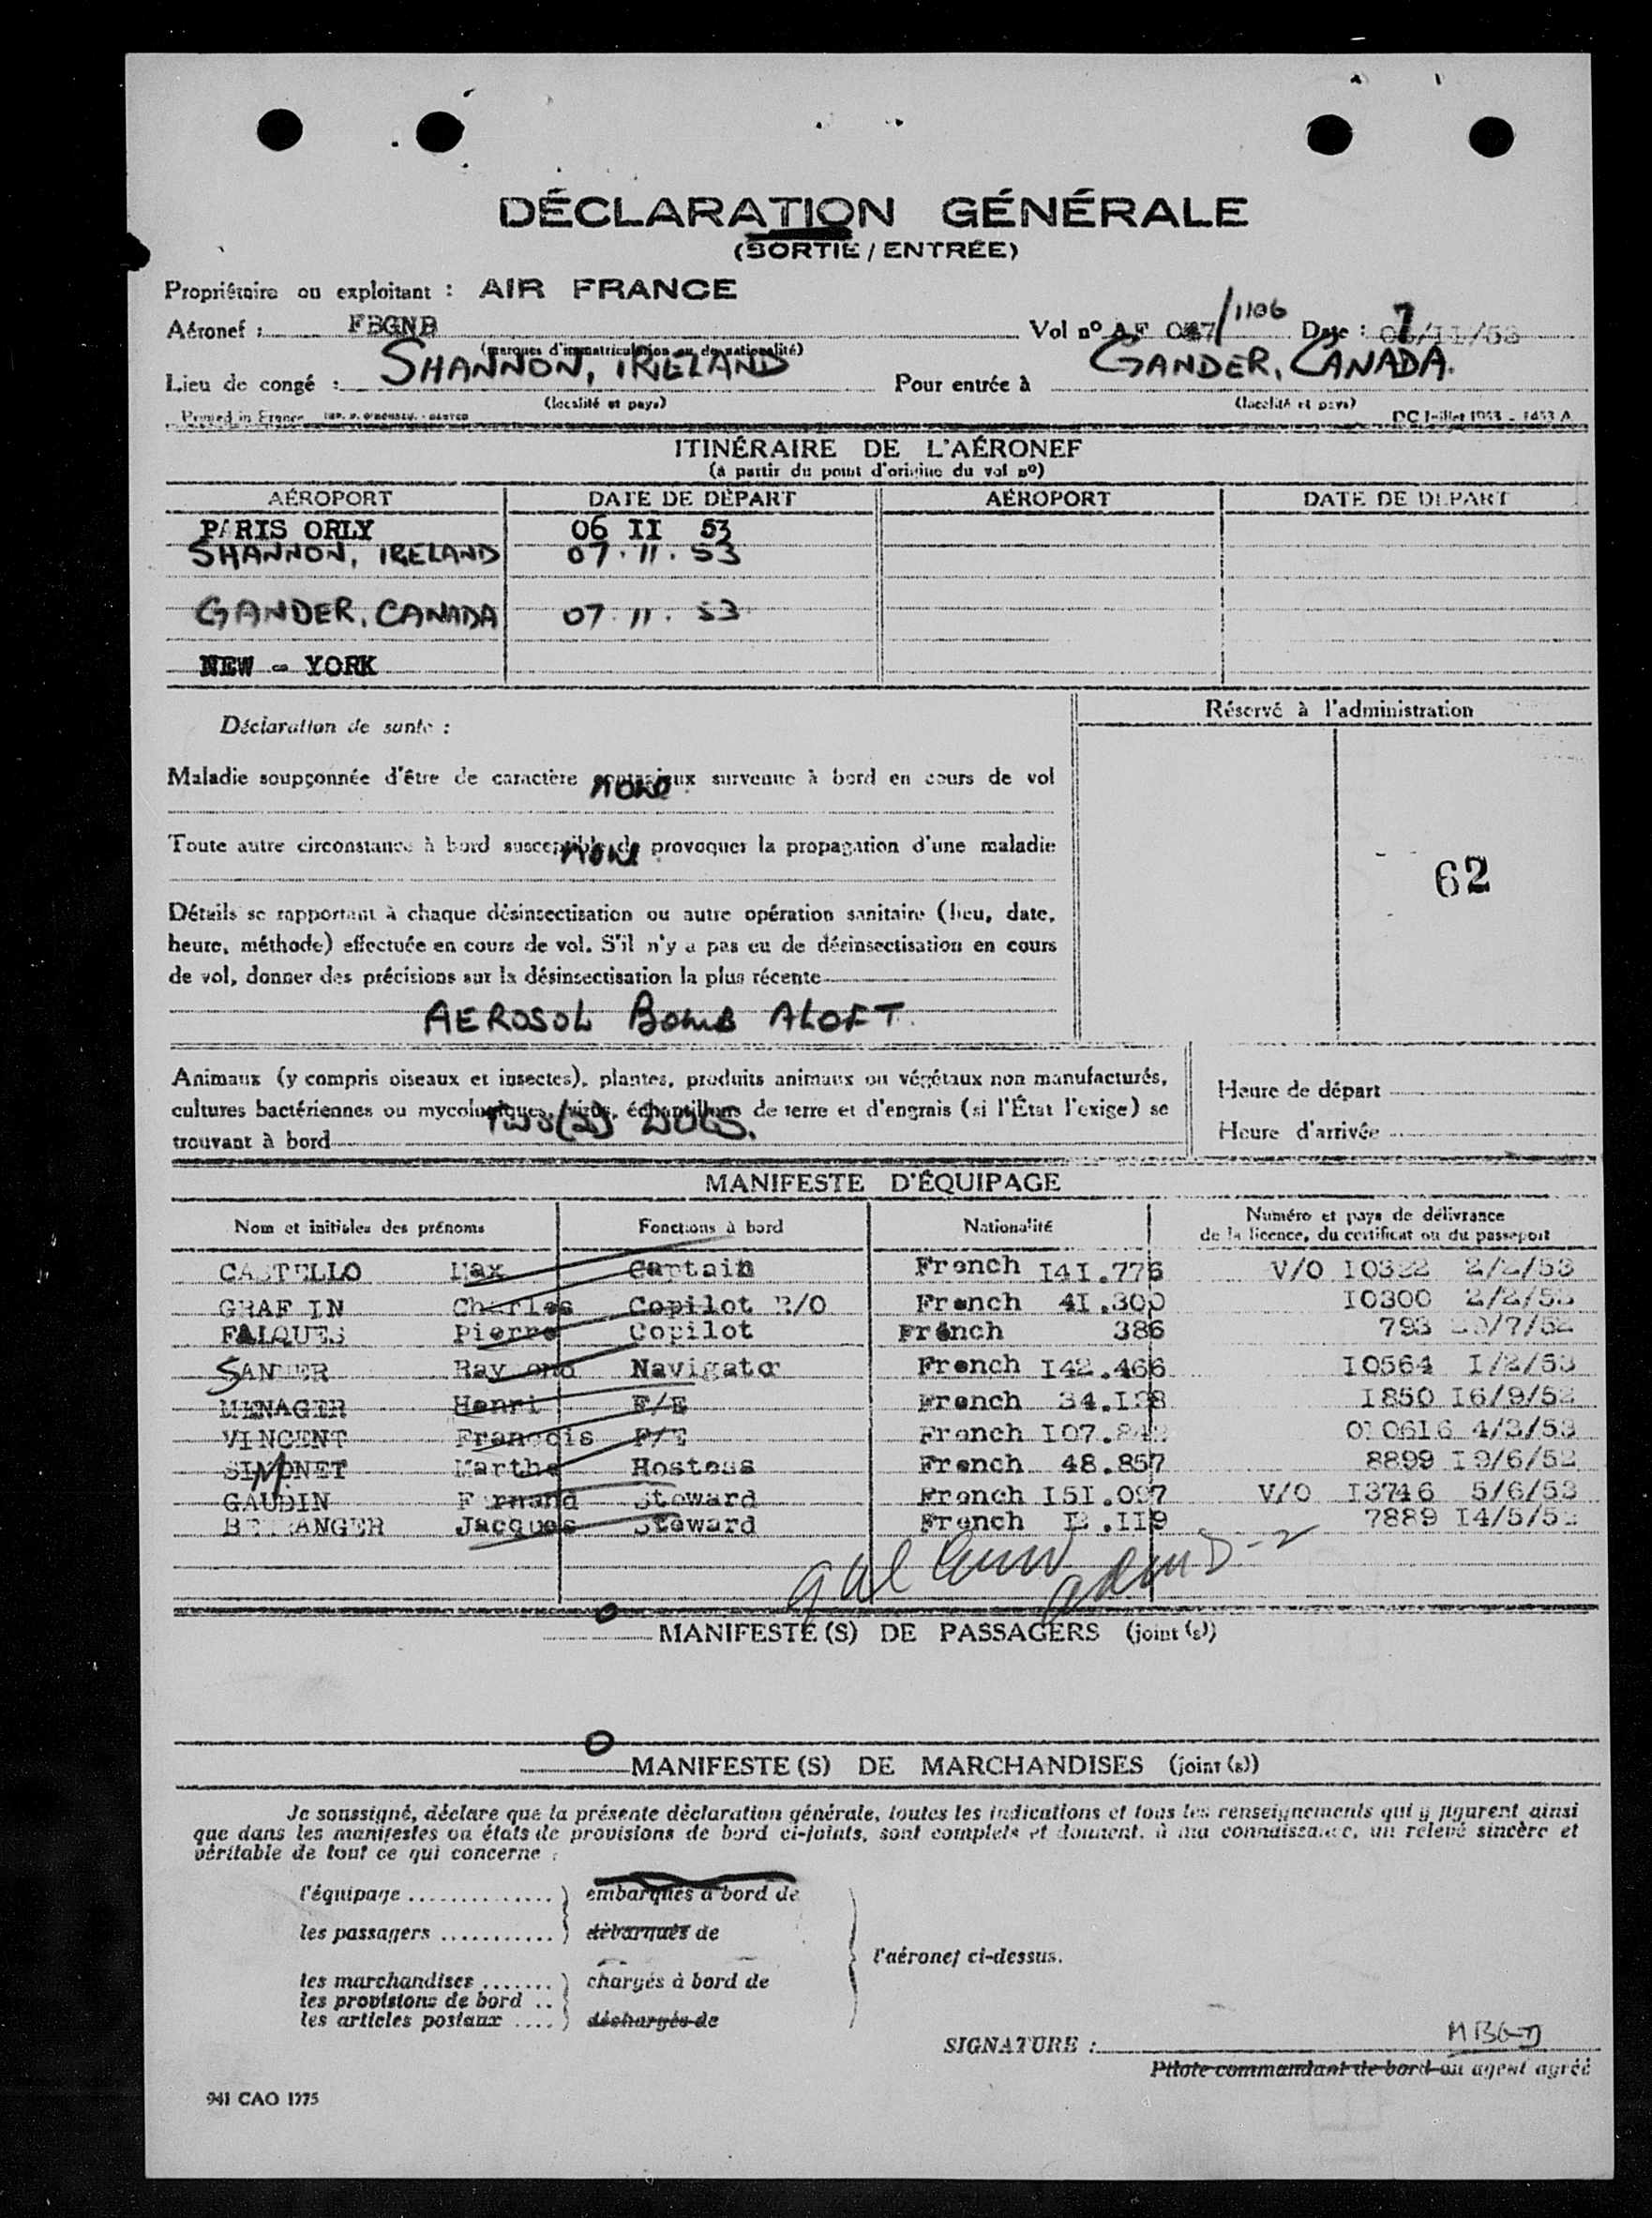 DÉCLARATION GÉNÉRALE
(SORTIE / ENTRÉE)
Propriétaire ou exploitant : AIR FRANCE
Aéronef : FBGNB Vol nº AF 047/1106 Date : 7/11/53
(marques d'immatriculation ou de nationalité)
Lieu de congé : SHANNON, IRELAND Pour entrée à GANDER, CANADA.
(localité et pays) (localité et pays)
Printed in France DC Juillet 1953 - 1453 A
ITINÉRAIRE DE L'AÉRONEF
(à partir du point d'origine du vol nº)
AÉROPORT DATE DE DÉPART AÉROPORT DATE DE DÉPART
PARIS ORLY 06 II 53
SHANNON, IRELAND 07.11.53
GANDER, CANADA 07.11.53
NEW - YORK
Déclaration de santé : Réservé à l'administration
Maladie soupçonnée d'être de caractère contagieux survenue à bord en cours de vol
NONE
Toute autre circonstance à bord susceptible de provoquer la propagation d'une maladie
NONE
62
Détails se rapportant à chaque désinsectisation ou autre opération sanitaire (lieu, date,
heure, méthode) effectuée en cours de vol. S'il n'y a pas eu de désinsectisation en cours
de vol, donner des précisions sur la désinsectisation la plus récente
AEROSOL BOMB ALOFT.
Animaux (y compris oiseaux et insectes), plantes, produits animaux ou végétaux non manufacturés,
cultures bactériennes ou mycologiques, virus, échantillons de terre et d'engrais (si l'État l'exige) se
trouvant à bord
TWO (2) DOGS.
Heure de départ
Heure d'arrivée
MANIFESTE D'ÉQUIPAGE
Nom et initiales des prénoms Fonctions à bord Nationalité Numéro et pays de délivrance
de la licence, du certificat ou du passeport
CASTELLO Max Captain French I41.776 V/O I0322 2/2/53
GRAFIN Charles Copilot R/O French 4I.300 I0300 2/2/53
FALQUES Pierre Copilot French 386 793
SANDER Raymond Navigator French I42.466 I0564 I/2/53
MENAGER Henri F/E French I850 I6/9/52
VINCENT Francois F/E French 4/3/53
SIMONET Marthe Hostess French 48.857 8899 I9/6/52
GAUDIN Fernand Steward French I5I.097 V/O I3746 5/6/53
BERRANGER Jacques Steward French 7889
0 MANIFESTE (S) DE PASSAGERS (joint (s))
0 MANIFESTE (S) DE MARCHANDISES (joint (s))
Je soussigné, déclare que la présente déclaration générale, toutes les indications et tous les renseignements qui y figurent ainsi
que dans les manifestes ou états de provisions de bord ci-joints, sont complets et donnent, à ma connaissance, un relevé sincère et
véritable de tout ce qui concerne :
l'équipage ............... embarqués à bord de
les passagers ........... débarqués de
l'aéronef ci-dessus.
les marchandises ....... chargés à bord de
les provisions de bord ..
les articles postaux .... déchargés de
SIGNATURE :
Pilote commandant de bord ou agent agréé
941 CAO 1775